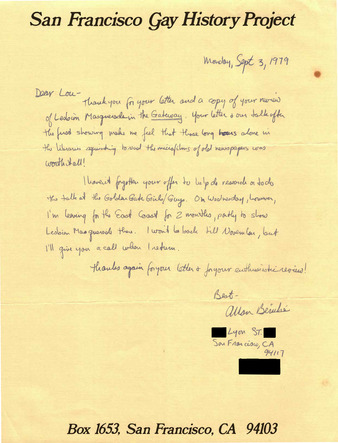 San Francisco Gay History Project
Monday, Sept 3, 1979
Dear Lou-
Thank you for your letter and a copy of your review
of Lesbian Masquerade in the Gateway. Your letter & our talk after
the first showing made me feel that those long hours alone in
the libraries squinting to read the microfilms of old newspapers was
worth it all!
I haven't forgotten your offer to help do research & to do
the talk at the Golden Gate Girls/Guys. On Wednesday, however,
I'm leaving for the East Coast for 2 months, partly to show
Lesbian Masquerade there. I won't be back till November, but
I'll give you a call when I return.
Thanks again for your letter & for your enthusiastic review!
Best-
Allan Bérubé
Lyon St.
San Francisco, CA
94117
Box 1653, San Francisco, CA 94103